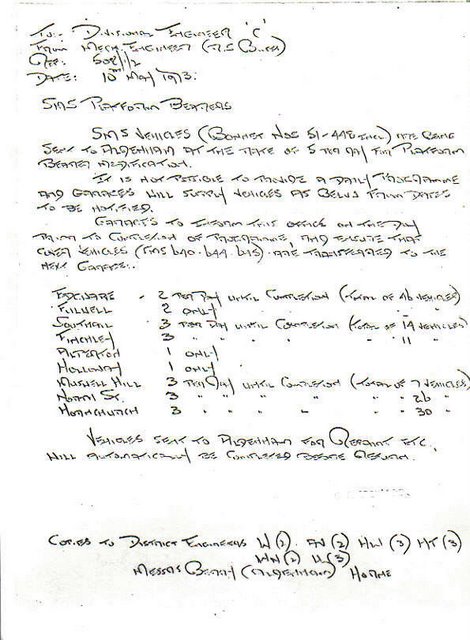 To:- Divisional Engineer 'C'
From Mech. Engineer (R.S. )
Ref: 508/1/2
Date: 10th May 1973.
SMS Platform Bearers
SMS Vehicles (Bonnet Nos 51-448 incl) are being
sent to Aldenham at the rate of 5 per day for Platform
Bearer modification.
It is not possible to provide a daily programme
and garages will supply vehicles as below from dates
to be notified.
Garages to inform this office on the day
prior to completion of programme, and ensure that
cover vehicles (SMS 640. 644. 645) are transferred to the
next garage:-
Edgware - 2 per day until completion (Total of 46 vehicles)
Fulwell 2 only
Southall 3 per day until completion (Total of 14 vehicles)
Finchley 3 " " " " " 11 "
Alperton 1 only
Holloway 1 only
Muswell Hill 3 per day until completion (Total of 7 vehicles)
North St. 3 " " " " " 26 "
Hornchurch 3 " " " " " 30 "
Vehicles sent to Aldenham for Repaint etc.
will automatically be completed before return.
Copies to District Engineers W (2). FN (2) HW (3) HT (3)
WN (2) U (3)
Messrs (Aldenham) Horne